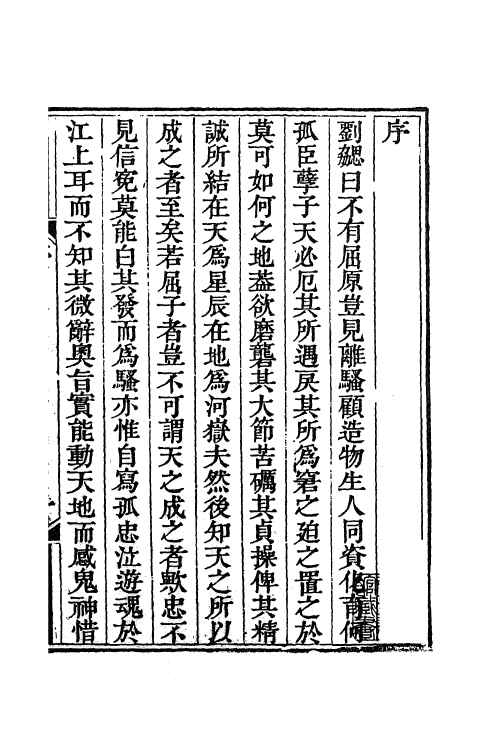 序
劉勰曰不有屈原豈見離騷顧造物生人同資化育何
孤臣孽子天必厄其所遇戾其所爲窘之廹之置之於
莫可如何之地葢欲磨礱其大節苦礪其貞操俾其精
誠所結在天爲星辰在地爲河嶽夫然後知天之所以
成之者至矣若屈子者豈不可謂天之成之者歟忠不
見信寃莫能白其發而爲騷亦惟自寫孤忠泣遊魂於
江上耳而不知其微辭奧旨實能動天地而感鬼神惜